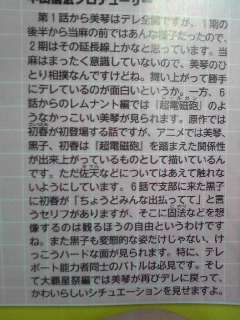 第1話から美琴はデレ全開ですが、1期の
後半から当麻の前ではあんな様子だったので、
2期はその延長線上かなと思っています。当
麻はまったく意識していないので、美琴のひ
とり相撲なんですけどね。舞い上がって勝手
にデレているのが面白いというか。一方、6
話からのレムナント編では『超電磁砲』のよ
うなかっこいい美琴が見られます。原作では
初春が初登場する話ですが、アニメでは美琴、
黒子、初春は『超電磁砲』を踏まえた関係性
が出来上がっているものとして描いているん
です。ただ佐天などについてはあえて触れな
いようにしています。6話で支部に来た黒子
に初春が「ちょうどみんな出払ってて」と言
うセリフがありますが、そこに固法などを想
像するのは観るほうの自由というわけです
ね。また黒子も変態的な姿だけじゃない、け
っこうハードな面が見られます。特に、テレ
ポート能力者同士のバトルは必見です。そし
て大覇星祭編では美琴が再びデレに戻って、
かわいらしいシチュエーションを見せますよ。